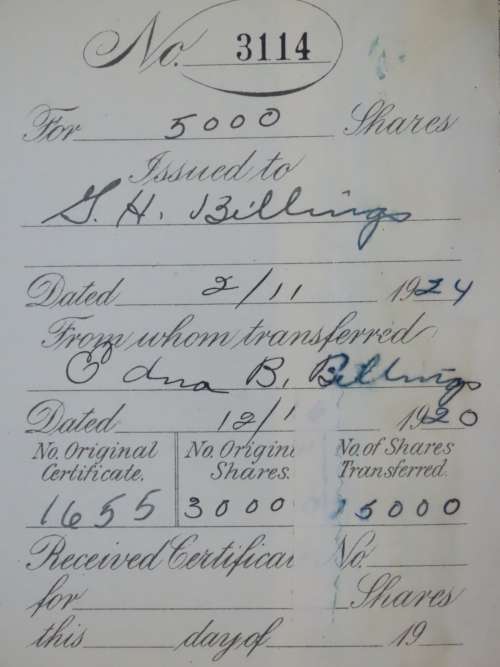 No. 3114
For 5000 Shares
Issued to
G. H. Billings
Dated 2/11 1924
From whom transferred
Edna B. Billings
Dated 12/1 1920
No. Original Certificate. No. Origin Shares. No. of Shares Transferred.
1655 3000 5000
Received Certificat No.
for Shares
this day of 19